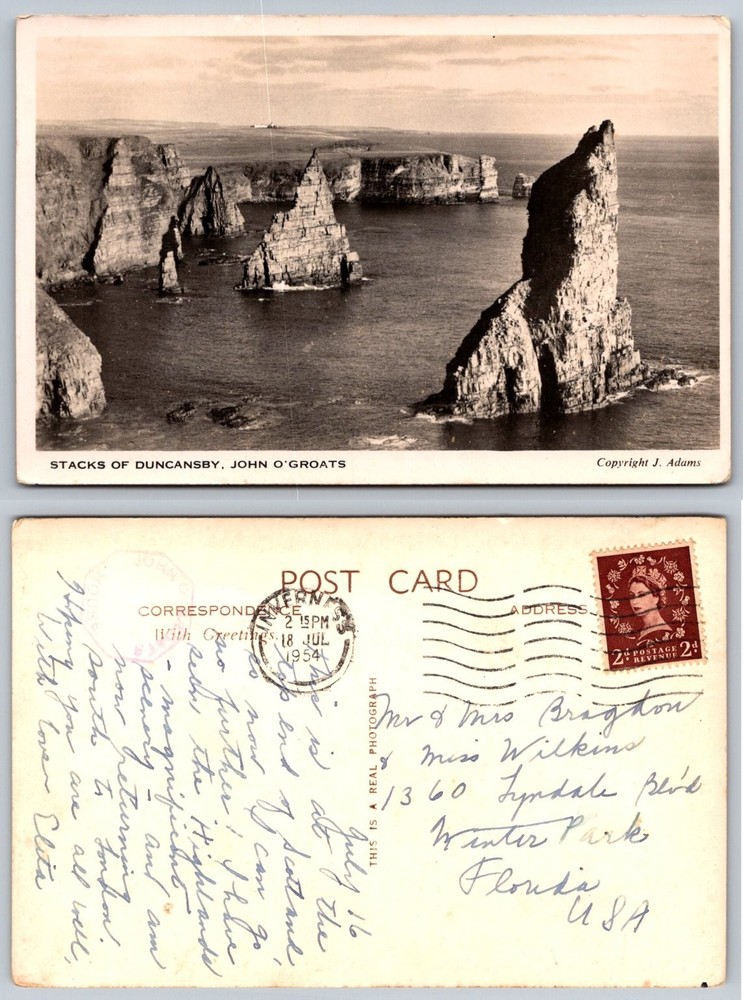 STACKS OF DUNCANSBY, JOHN O'GROATS
Copyright J. Adams
POST CARD
CORRESPONDENCE
ADDRESS
With Greetings.
INVERNESS
2 15 PM
18 JUL
1954
2d POSTAGE 2d
REVENUE
THIS IS A REAL PHOTOGRAPH
July 16
This is at the
top end of Scotland
so now I can go
no further! I have
seen the Highlands
- magnificent
scenery - and am
now returning
south to London.
Hoping you are all well,
With love Elsa
Mr & Mrs Bragdon
& Miss Wilkins
1360 Lyndale Blv'd
Winter Park
Florida
USA